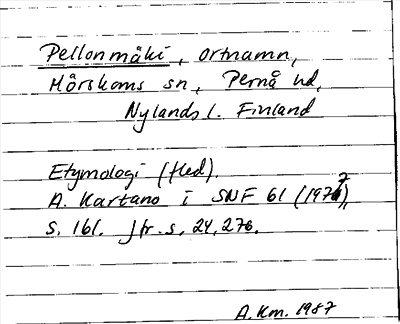 Pellonmäki, ortnamn,
Mörskoms sn, Pernå hd,
Nylands l. Finland
Etymologi (fled).
A. Kartano i SNF 61 (1977),
s. 161. Jfr s. 24, 276.
A. Km. 1987